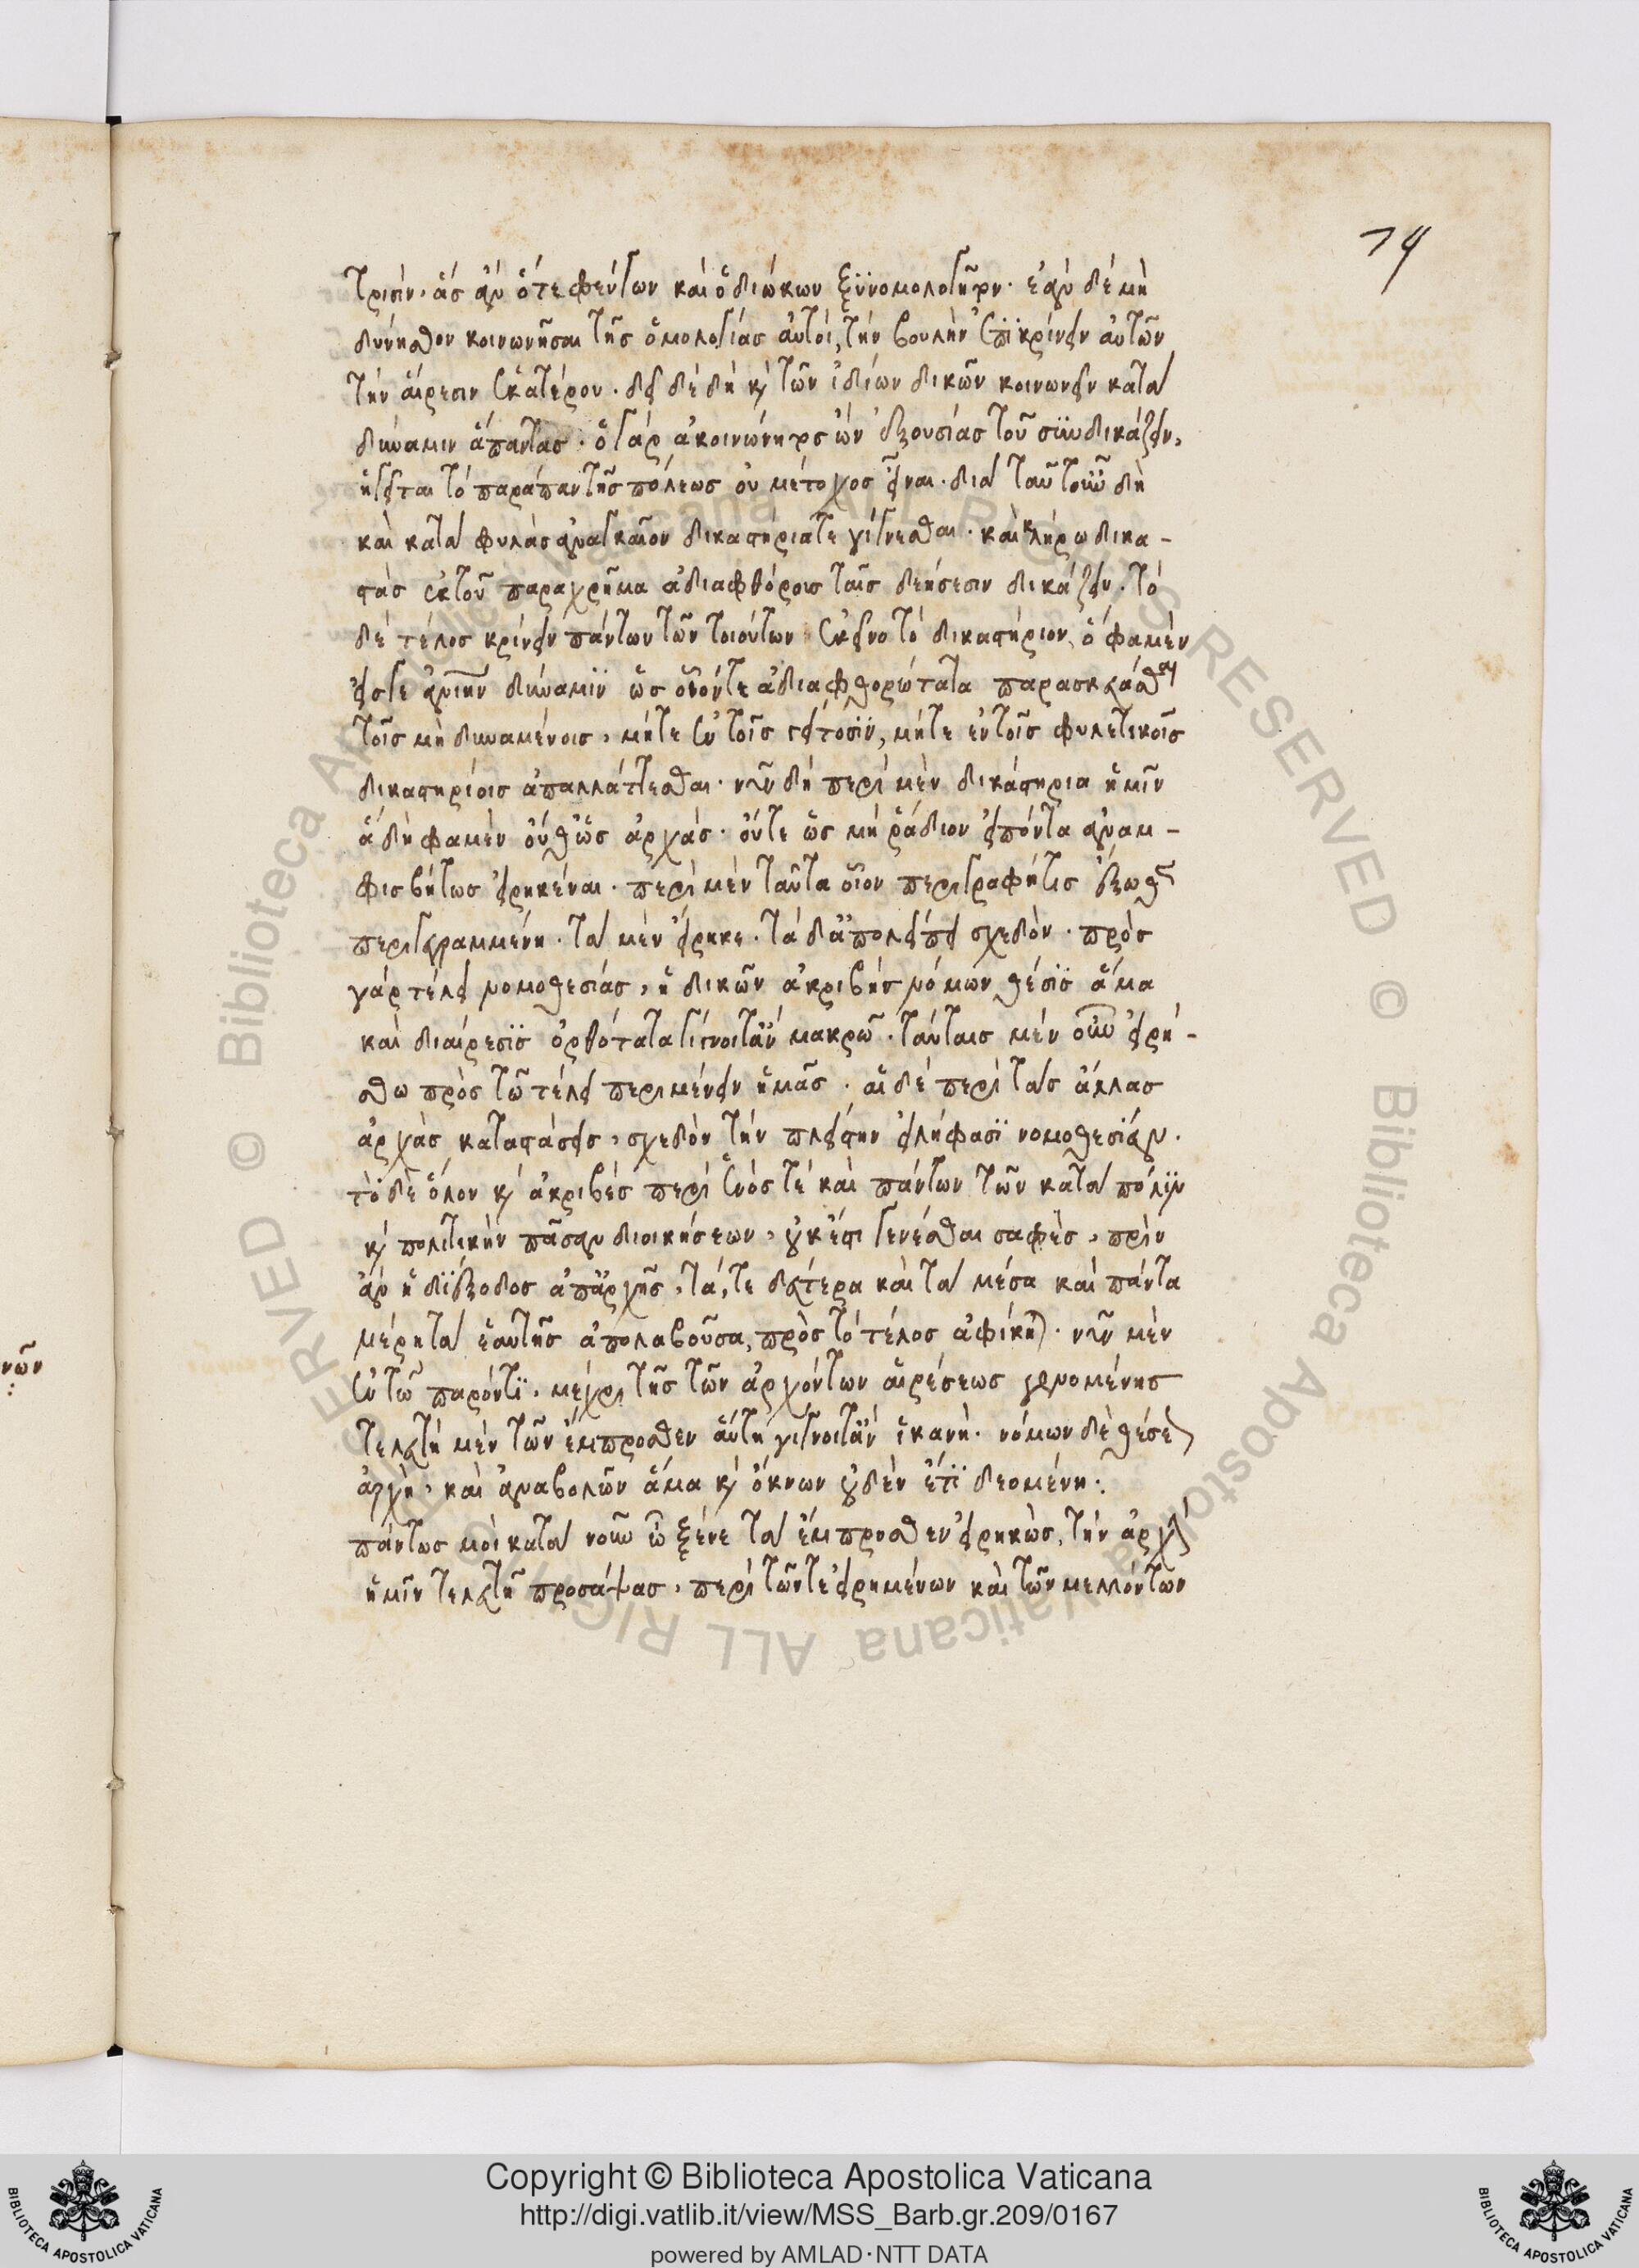 74
τρισὶν, ἃς ἂν ὅτε φεύγων καὶ ὁ διώκων ξυνομολογῆτον. ἐὰν δὲ μὴ
δύνησθον κοινωνῆσαι τῆς ὁμολογίας αὐτοί, τὴν βουλὴν ἐπικρίνειν αὐτῶν
τὴν αἵρεσιν ἑκατέρου. δεῖ δὲ δὴ κ̀ τῶν ἰδίων δικῶν κοινωνεῖν κατὰ
δύναμιν ἅπαντας. ὁ γὰρ ἀκοινώνητος ὢν ἐξουσίας τοῦ συνδικάζειν,
ἡγεῖται τὸ παράπαν τῆς πόλεως οὐ μέτοχος εἶναι. διὰ ταῦτ' οὖν δὴ
καὶ κατὰ φυλὰς ἀναγκαῖον δικαστήριά τε γίγνεσθαι. καὶ κλήρω δικα-
στὰς ἐκ τοῦ παραχρῆμα ἀδιαφθόρους ταῖς δεήσεσιν δικάζειν. τὸ
δὲ τέλος κρίνειν πάντων τῶν τοιούτων ἐκεῖνο τὸ δικαστήριον, ὅ φαμὲν
εἰς γε δύναμιν ὡς οἷόντε ἀδιαφθορώτατα παρασκευάσθαι
τοῖς μὴ δυναμένοις, μήτε ἐν τοῖς γείτοσιν, μήτε ἐν τοῖς φυλετικοῖς
δικαστηρίοις ἀπαλλάττεσθαι. νῦν δὴ περὶ μὲν δικάστηρια ἡμῖν
ἃ δή φαμὲν οὔθ' ὡς ἀρχὰς. οὔτε ὡς μὴ ῥάδιον εἰπόντα ἀναμ-
φισβήτως εἰρηκέναι. περὶ μὲν ταῦτα οἷον περιγραφή τις ἔξωθεν
περιγεγραμμένη. τὰ μὲν εἴρηκε. τὰ δ' ἀπολείπει σχεδὸν. πρὸς
γὰρ τέλει νομοθεσίας, ἡ δικῶν ἀκριβὴς νόμων θέσις ἅμα
καὶ διαίρεσις ὀρθότατα γίγνοιτ' ἂν μακρῶ. ταύταις μὲν οὖν εἰρή-
σθω πρὸς τῶ τέλει περιμένειν ἡμᾶς. αἱ δὲ περὶ τὰς ἄλλας
ἀρχὰς καταστάσεις, σχεδὸν τὴν πλείστην εἰλήφασι νομοθεσίαν.
τὸ δὲ ὅλον κ̀ ἀκριβὲς περὶ ἑνός τε καὶ πάντων τῶν κατὰ πόλιν
κ̀ πολιτικὴν πᾶσαν διοικήσεων, οὐκ ἔστι γενέσθαι σαφὲς, πρὶν
ἂν ἡ διέξοδος ἀπ' ἀρχῆς, τά, τε δεύτερα καὶ τὰ μέσα καὶ πάντα
μέρη τὰ ἑαυτῆς ἀπολαβοῦσα, πρὸς τὸ τέλος ἀφίκηται. νῦν μὲν
ἐν τῶ παρόντι, μέχρι τῆς τῶν ἀρχόντων αἱρέσεως γενομένης
τελευτὴ μὲν τῶν ἔμπροσθεν αὕτη γίγνοιτ' ἂν ἱκανὴ. νόμων δὲ θέσεως
ἀρχὴ, καὶ ἀναβολῶν ἅμα κ̀ ὄκνων οὐδὲν ἔτι δεομένη.
πάντως μοι κατὰ νοῦν ὦ ξένε τὰ ἔμπροσθεν εἰρηκὼς, τὴν ἀρχὴν
ἡμῖν τελευτῆ προσάψας, περὶ τῶν τε εἰρημένων καὶ τῶν μελλόντων
νῶν
Copyright © Biblioteca Apostolica Vaticana
http://digi.vatlib.it/view/MSS_Barb.gr.209/0167
powered by AMLAD·NTT DATA